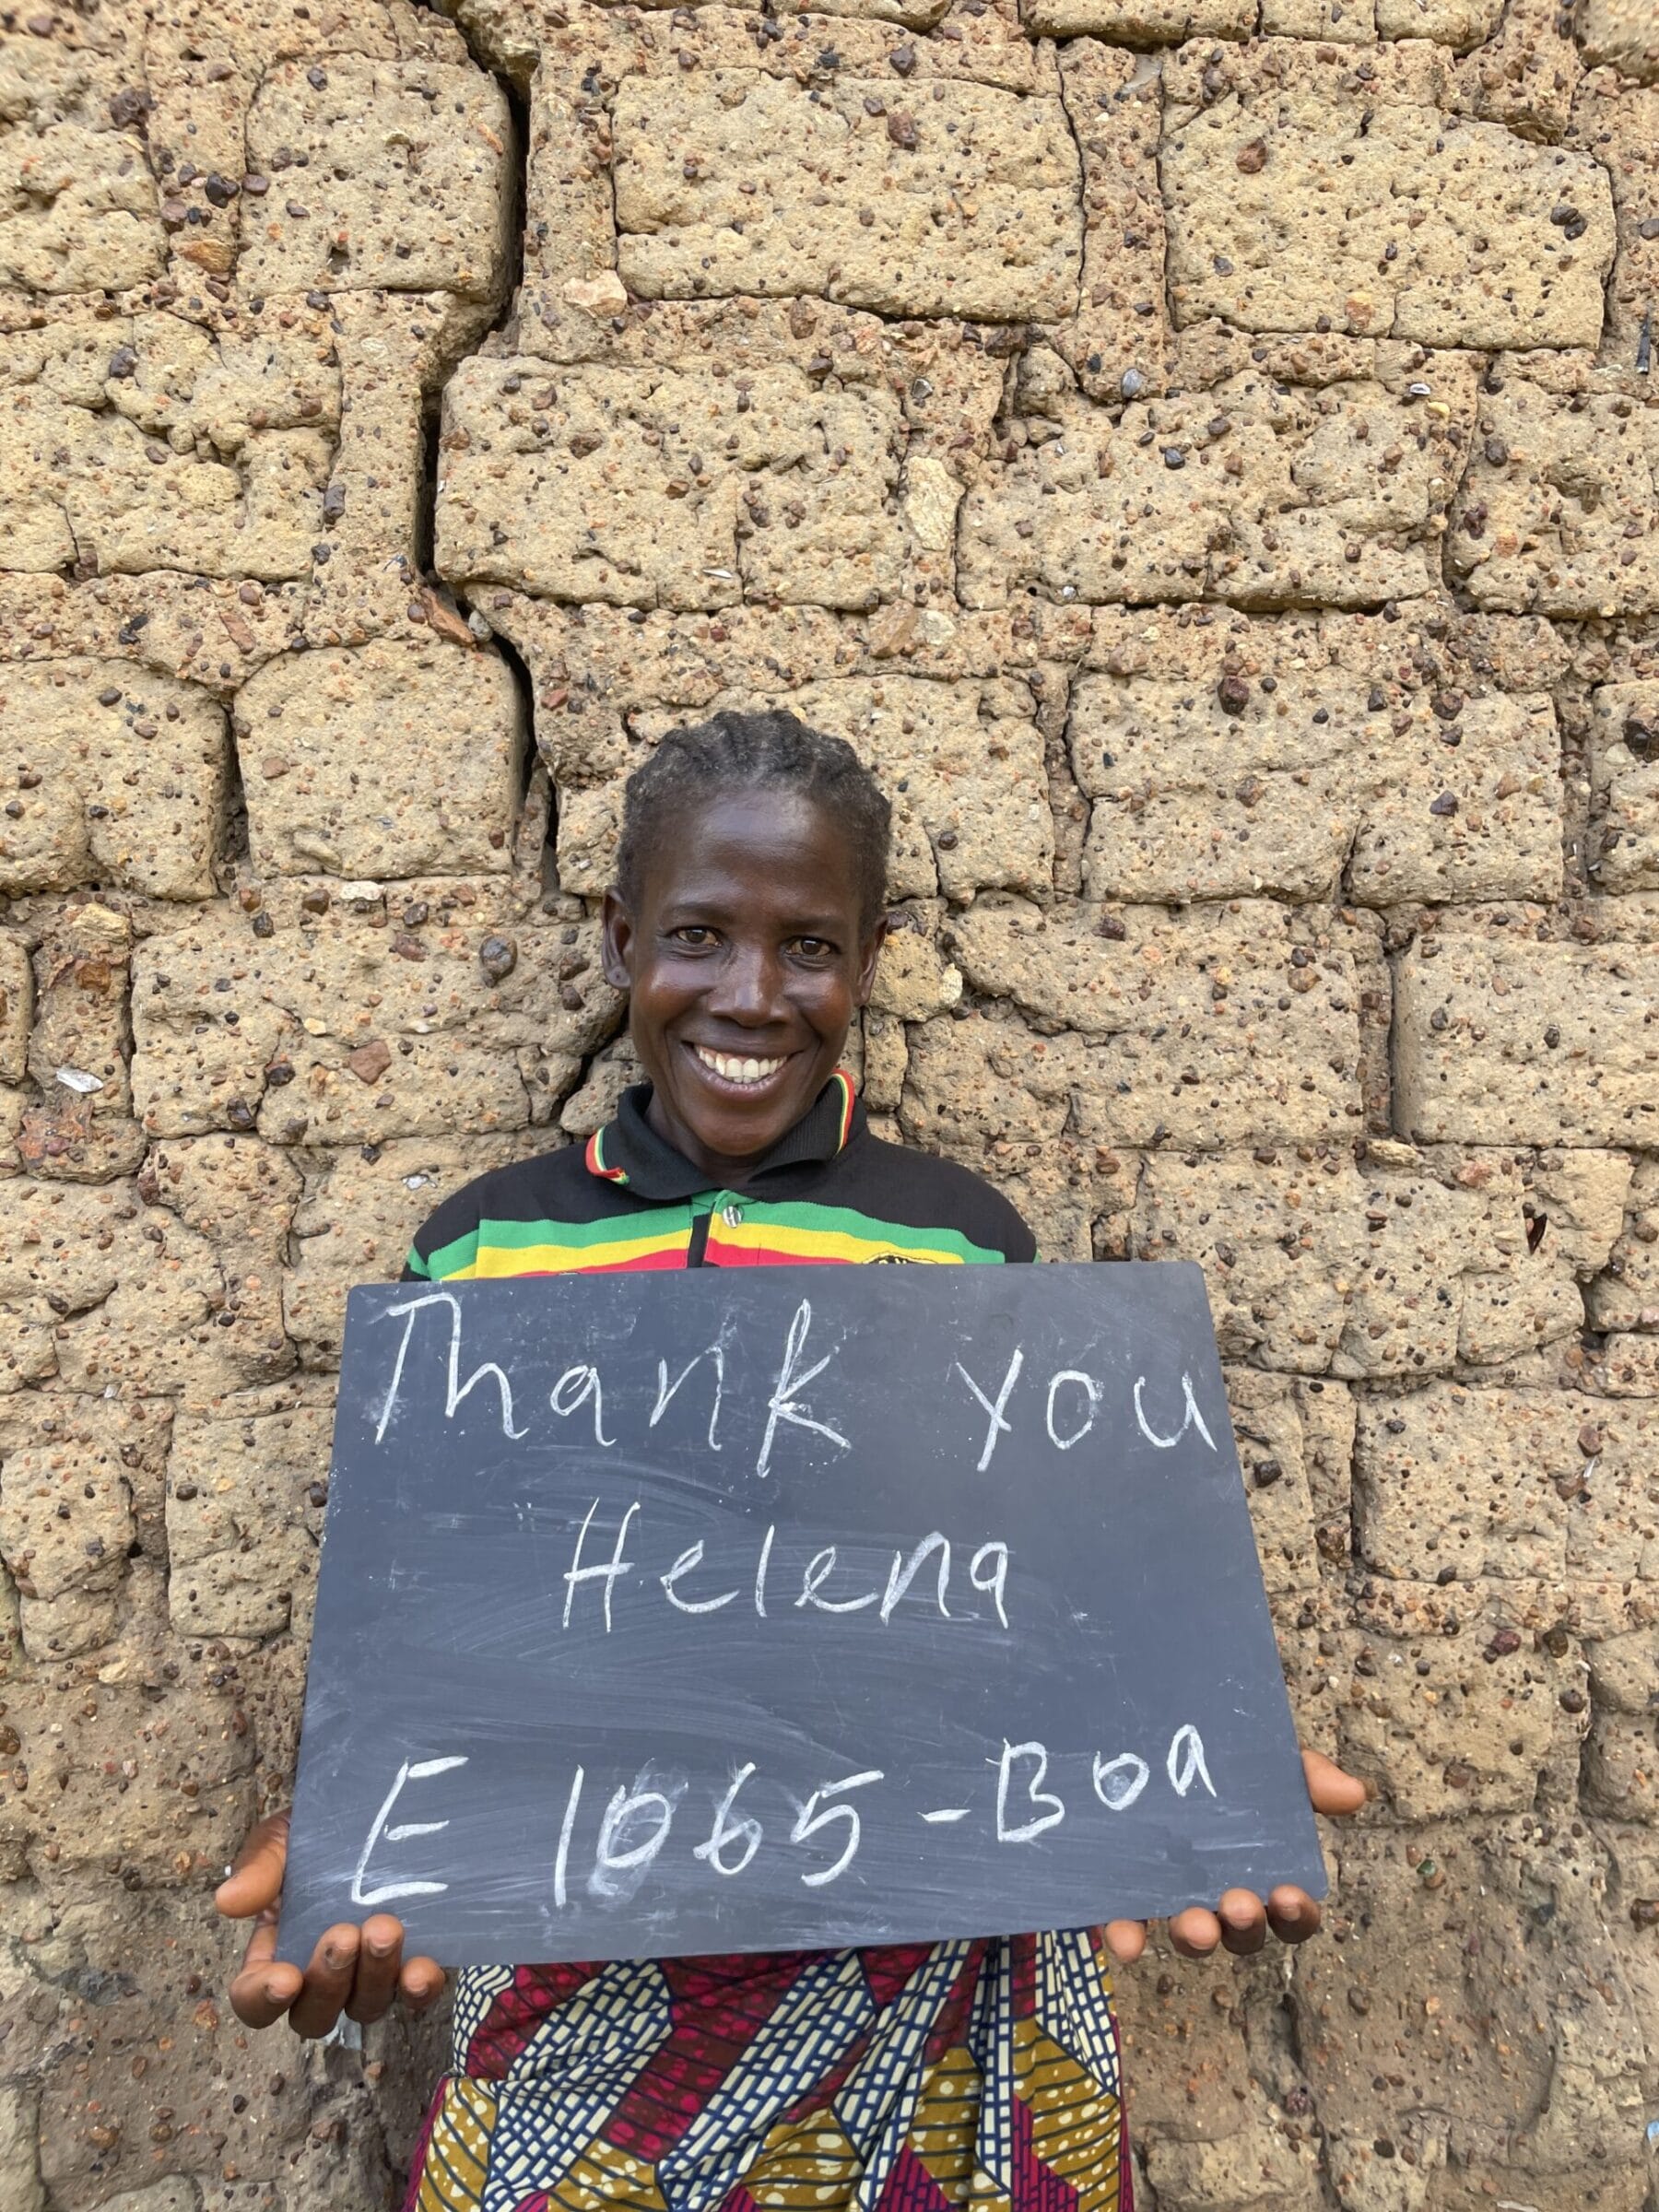 Thank you
Helena
E 1065-Boa